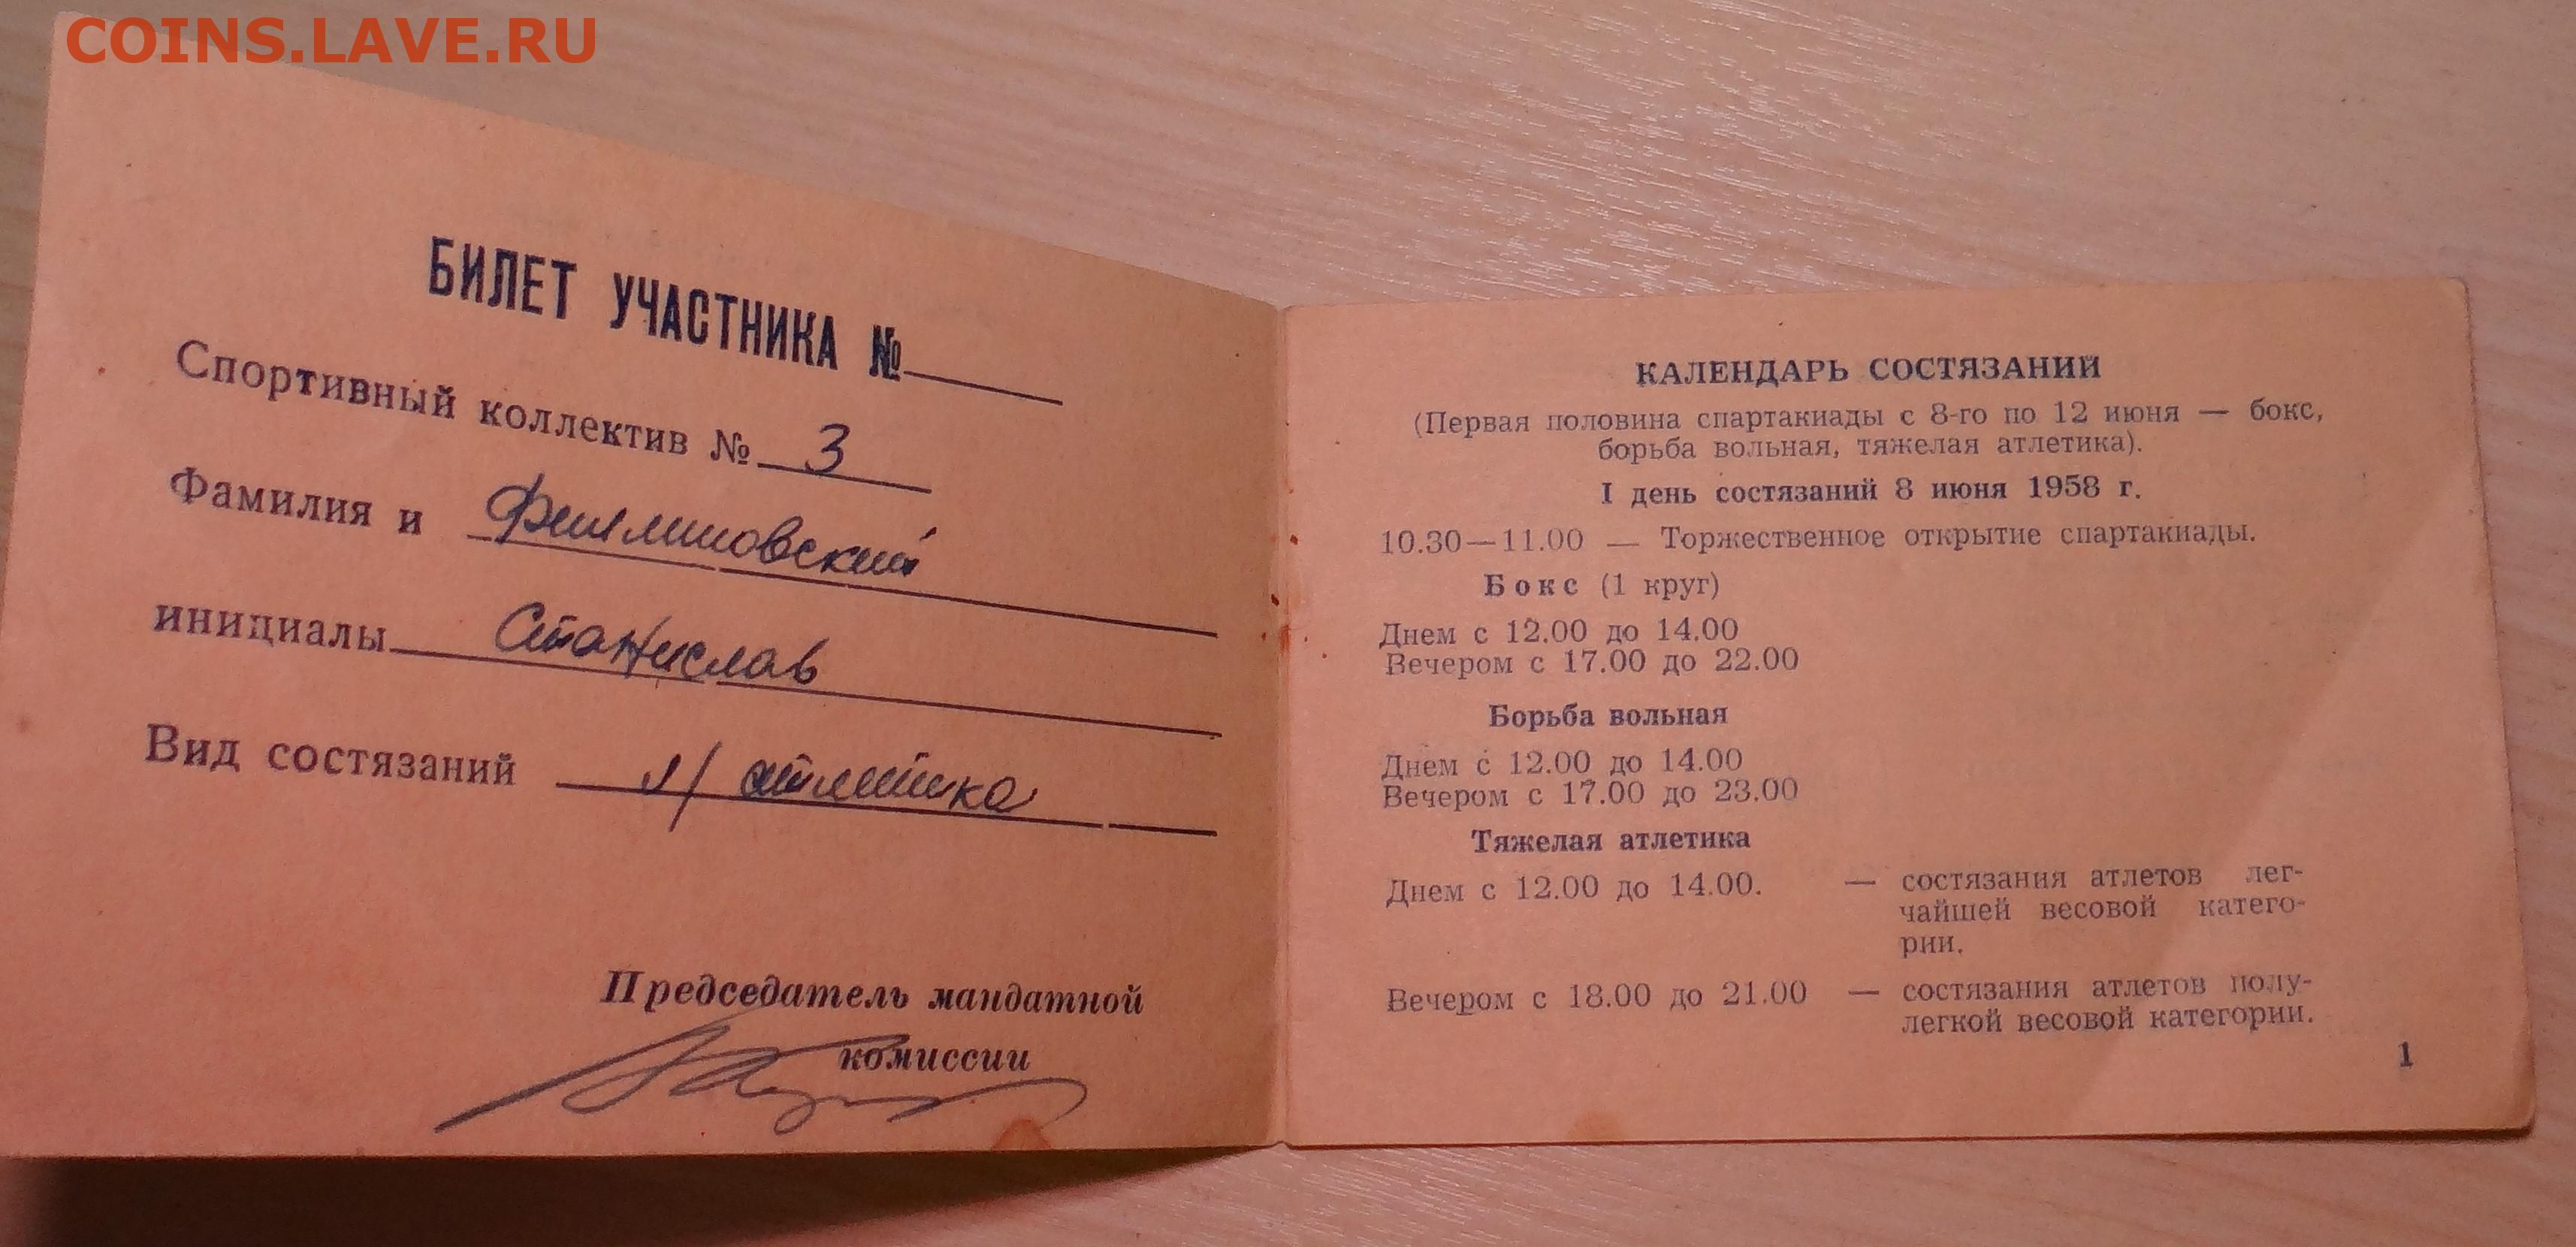 COINS.LAVE.RU
БИЛЕТ УЧАСТНИКА №
Спортивный коллектив № 3
Фамилия и
инициалы Станислав
Вид состязаний л/ атлетика
Председатель мандатной
комиссии
КАЛЕНДАРЬ СОСТЯЗАНИЙ
(Первая половина спартакиады с 8-го по 12 июня — бокс,
борьба вольная, тяжелая атлетика).
I день состязаний 8 июня 1958 г.
10.30—11.00 — Торжественное открытие спартакиады.
Бокс (1 круг)
Днем с 12.00 до 14.00
Вечером с 17.00 до 22.00
Борьба вольная
Днем с 12.00 до 14.00
Вечером с 17.00 до 23.00
Тяжелая атлетика
Днем с 12.00 до 14.00. — состязания атлетов лег-
чайшей весовой катего-
рии.
Вечером с 18.00 до 21.00 — состязания атлетов полу-
легкой весовой категории.
1